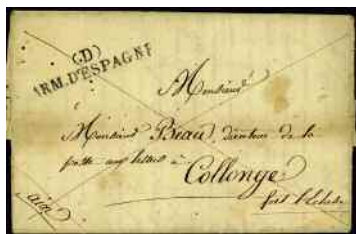 (D)
ARM. D'ESPAGNE
Monsieur
à
Monsieur Beau, directeur de la
poste aux lettres à
Collonge
fort l'Ecluse
ain